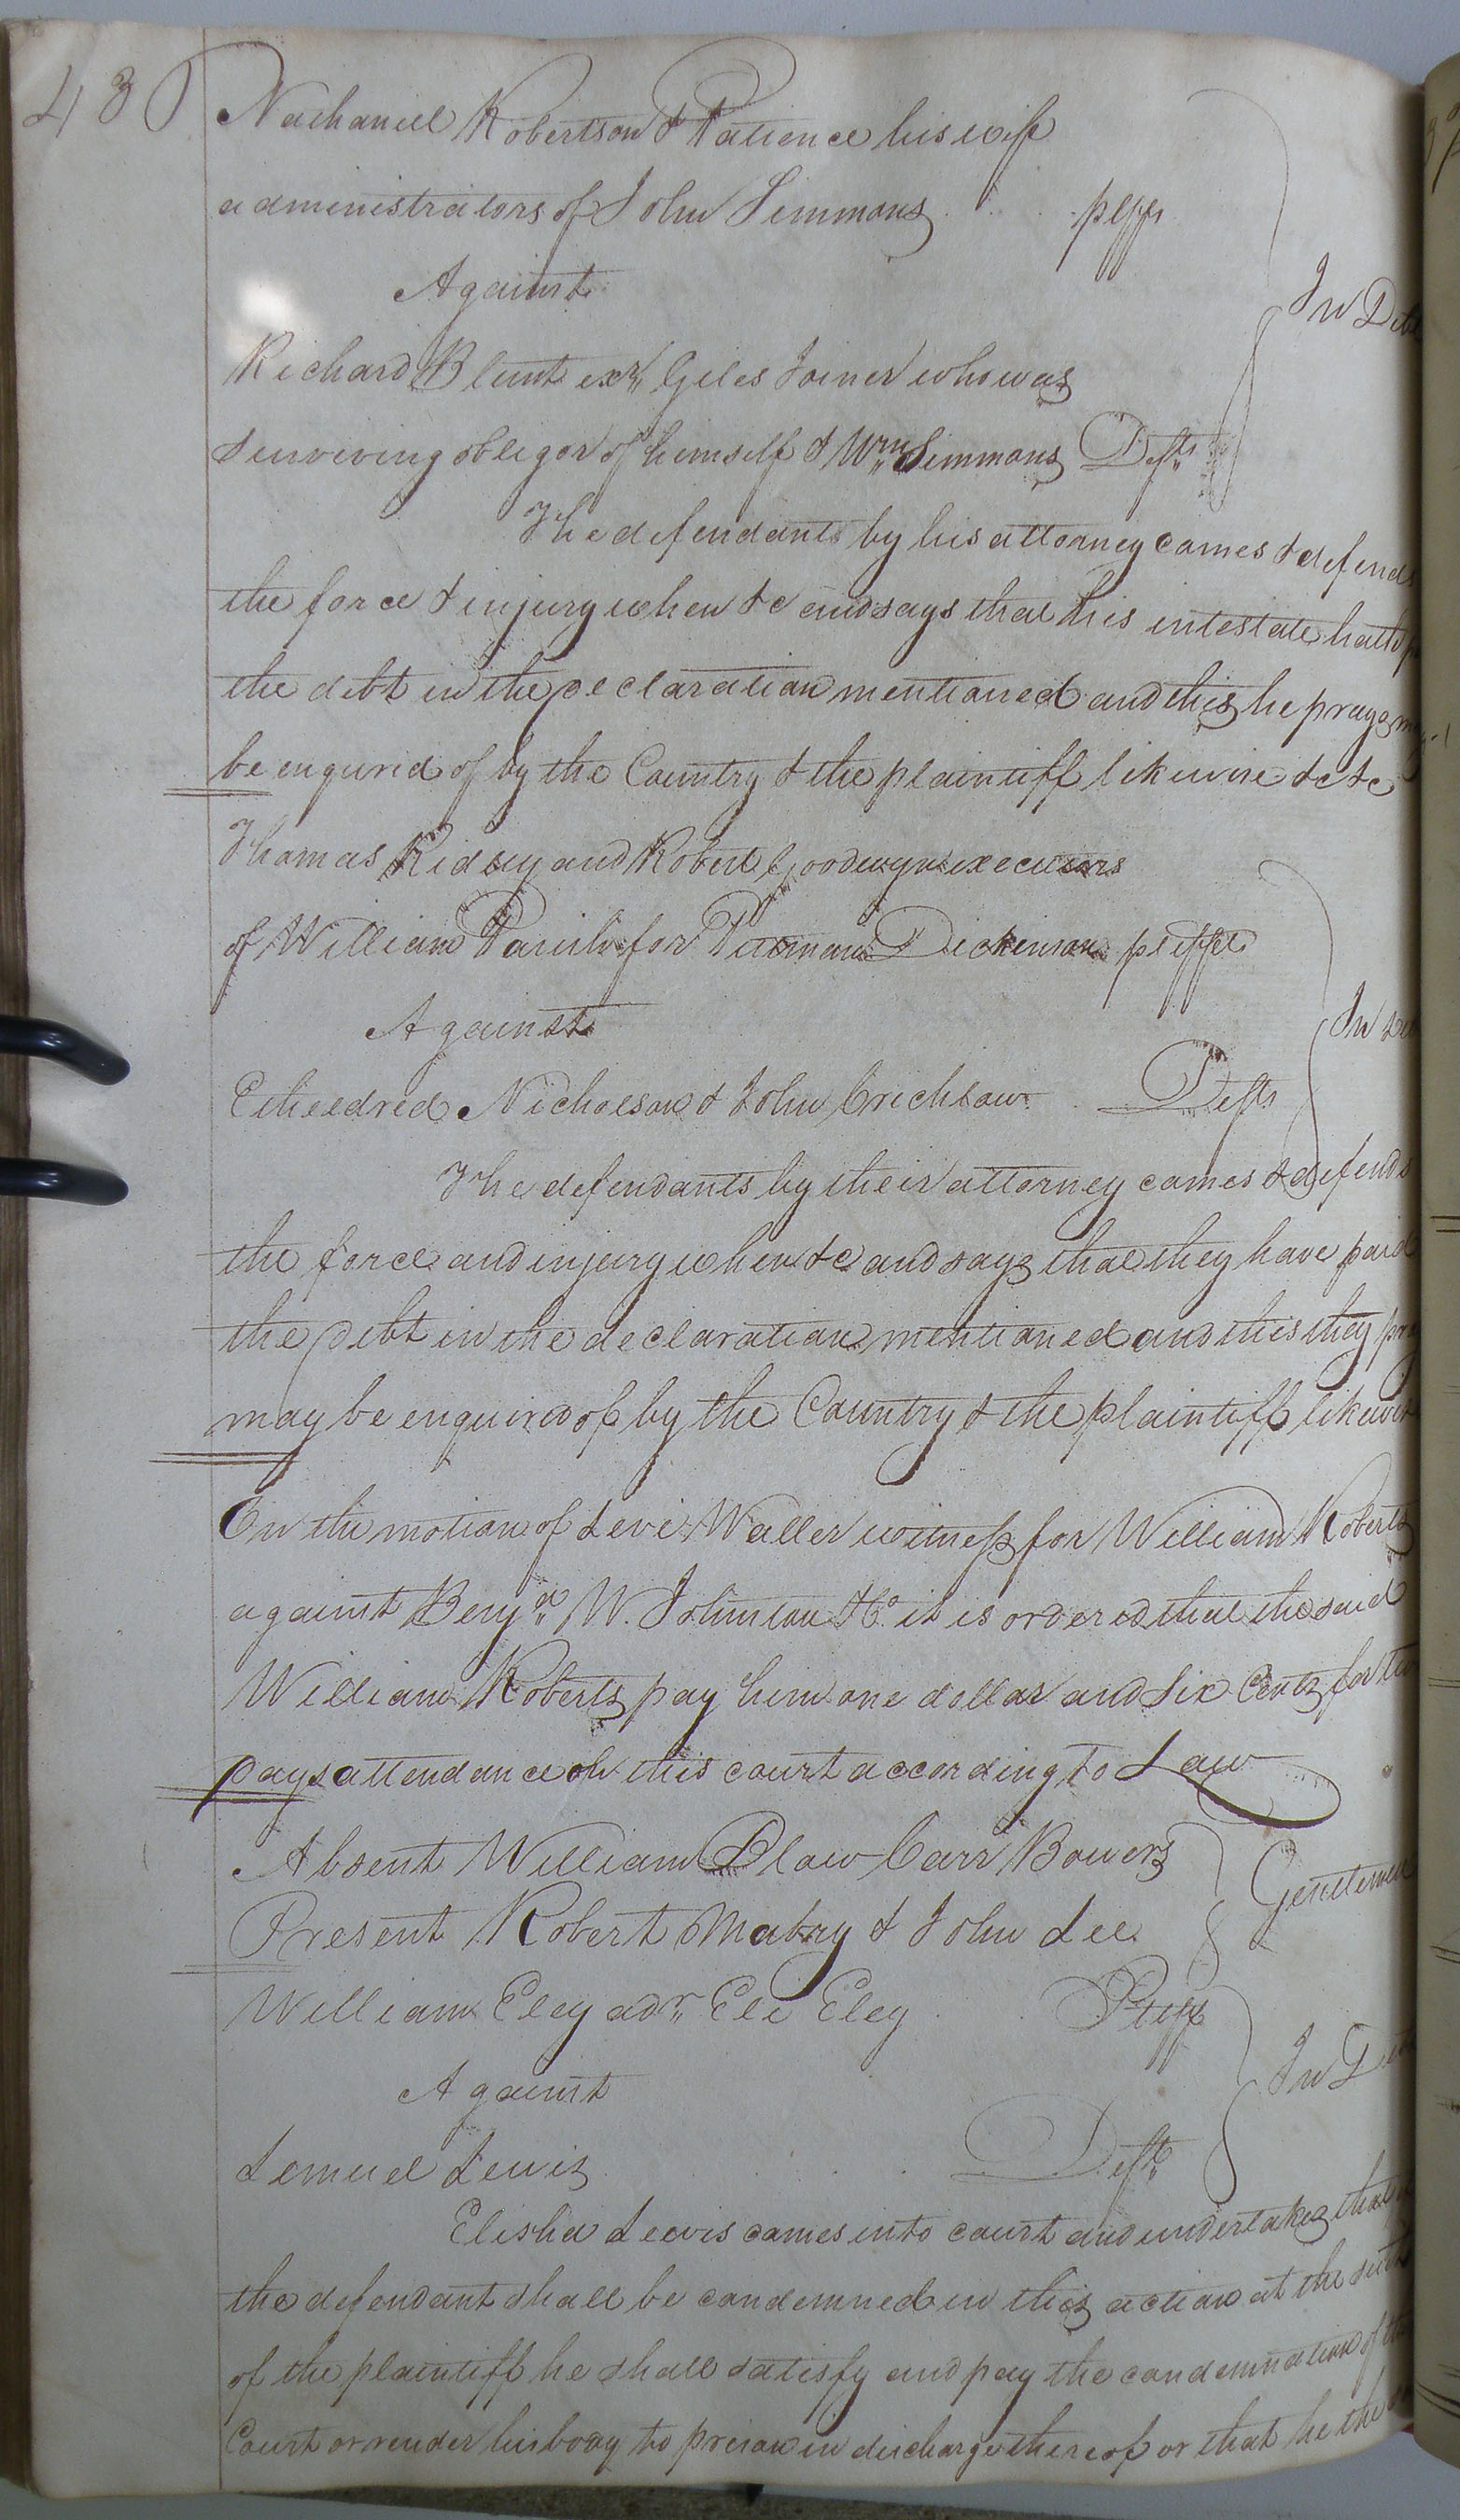 430
Nathaniel Robertson & Patience his wife
administrators of John Simmons plffs
Against
In Debt
Richard Blunt exr Giles Joiner who was
surviving obligor of himself & Wm Simmons Defts
The defendants by his attorney comes & defends
the force & injury when &c and says that his intestate hath
the debt in the declaration mentioned and this he prays
be enquired of by the Country & the plaintiff likewise &c &c
Thomas Ridley and Robert Goodwyn executors
of William for Dickinson plffs
Against
In
Etheldred Nicholson & John Crichlow Defts
The defendants by their attorney comes & defends
the force and injury when &c and says that they have paid
the debt in the declaration mentioned and this they
may be enquired of by the Country & the plaintiff likewise
On the motion of Levi Waller witness for William Roberts
against Benjn W. Johnson &Co it is ordered that the said
William Roberts pay him one dollar and six Cents for two
days attendance on this court according to Law
Absent William Blow Carr Bowers
Gentlemen
Present Robert Mabry & John Lee
William Eley adr Eli Eley Pltff
Against
In Debt
Lemuel Lewis Deft
Elisha Lewis comes into court and undertakes that
the defendant shall be condemned in this action at the suit
of the plaintiff he shall satisfy and pay the condemnation of the
Court or render his body to prison in discharge thereof or that he the